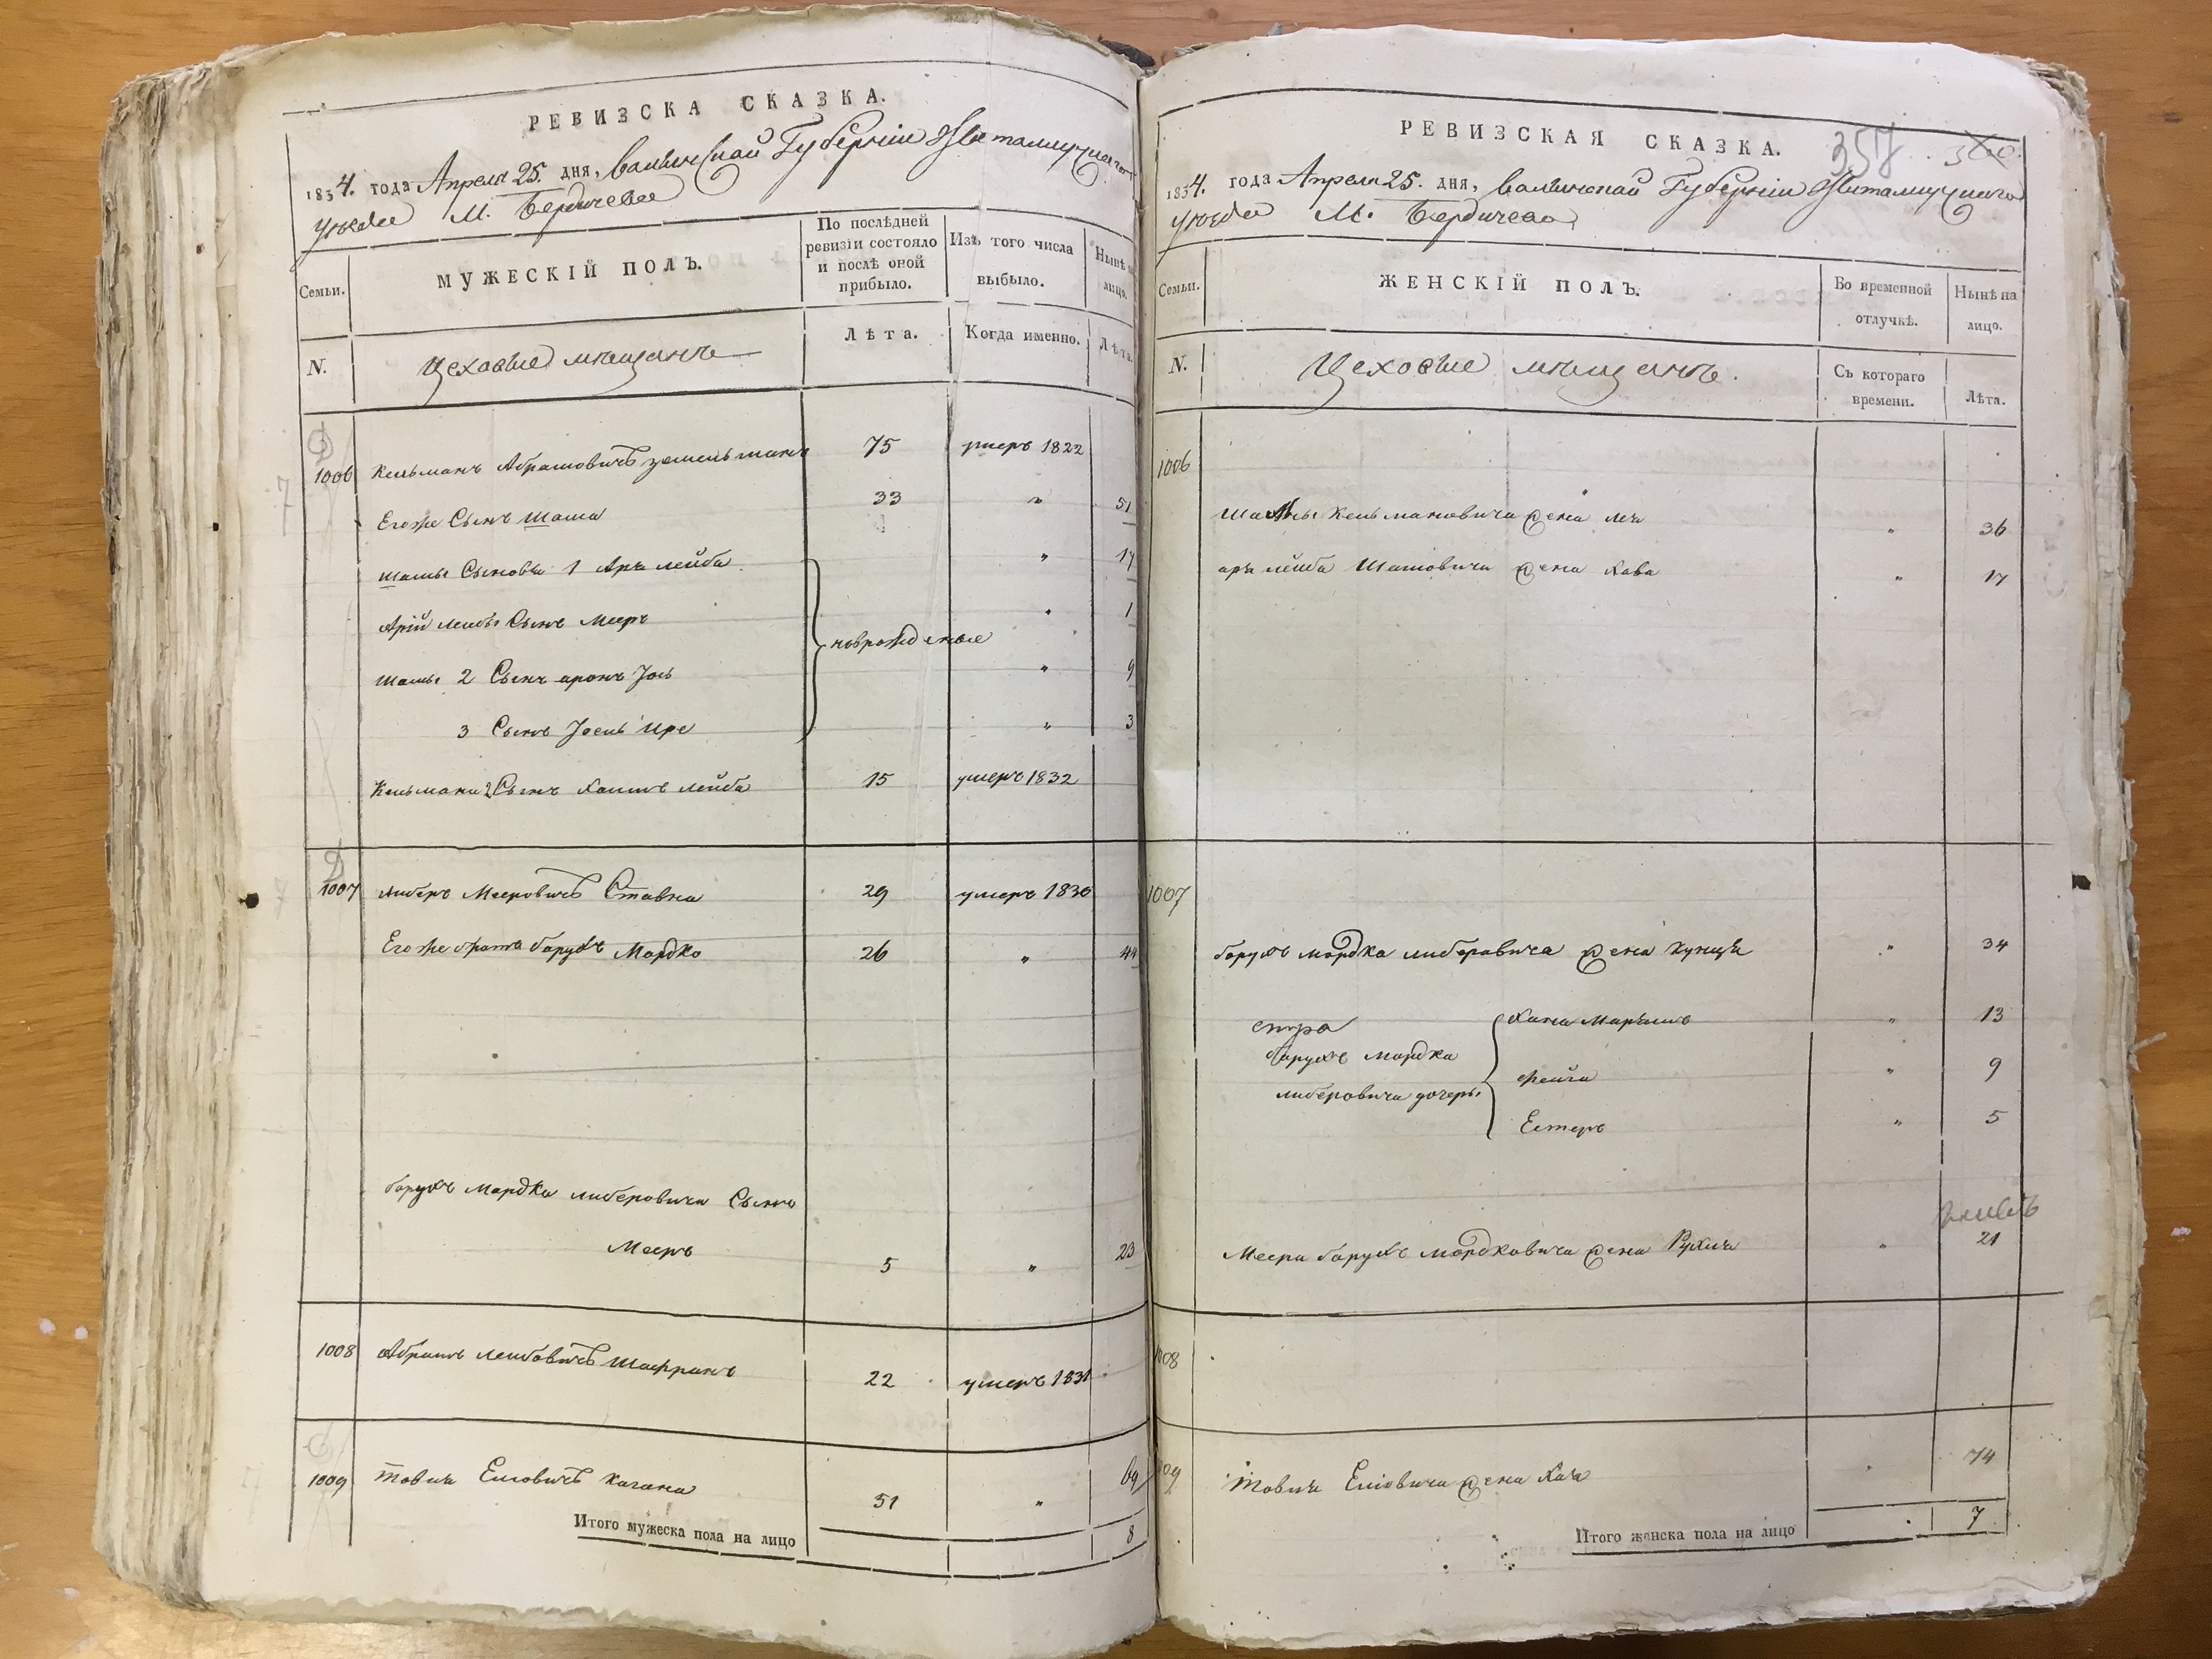 РЕВИЗСКА СКАЗКА.
1834. года Апреля 25. дня, Волынской Губернiи Житомирскаго
уезда М. Бердичева
Семьи.
МУЖЕСКIЙ ПОЛЪ.
По послѣдней ревизiи состояло и послѣ оной прибыло.
Изъ того числа выбыло.
Нынѣ на лицо.
N.
Цеховые мещане
Лѣта.
Когда именно.
Лѣта.
1006 Кельманъ Абрамовичъ 75 умеръ 1822
Егоже Сынъ Шама 33 " 51
Шамы Сыновья 1 Аря лейба " 17
Арiй лейбы Сынъ Мееръ " 1
новрожденые
Шамы 2 Сынъ аронъ Iось " 9
3 Сынъ " 3
Кельмана 2 Сынъ Хаимъ лейба 15 умеръ 1832
1007 Либеръ Мееровичъ Ставка 29 умеръ 1830
Егоже братъ барухъ Мордко 26 " 44
барухъ Мордка либеровича Сынъ
Мееръ 5 " 23
1008 Абрамъ Лейбовичъ Шафранъ 22 умеръ 1831
1009 Товия Елiовичъ Кагана 51 " 69
Итого мужеска пола на лицо 8
РЕВИЗСКАЯ СКАЗКА.
358
1834. года Апреля 25. дня, Волынской Губернiи Житомирскаго
уезда М. Бердичева
Семьи.
ЖЕНСКIЙ ПОЛЪ.
Во временной отлучкѣ.
Нынѣ на лицо.
N.
Цеховые мещане.
Съ котораго времени.
Лѣта.
1006
Шамы Кельмановича жена Леа " 36
аря лейба Шамовича жена Хава " 17
1007
барухъ мордка либеровича жена Кунця " 34
барухъ Мордка
либеровича дочеры
Хана Марьямъ " 13
Фейга " 9
Естеръ " 5
Меера барухъ Мордковича жена Рухля " 21
1008
1009 Товия Елiовича жена Хая 74
Итого женска пола на лицо 7